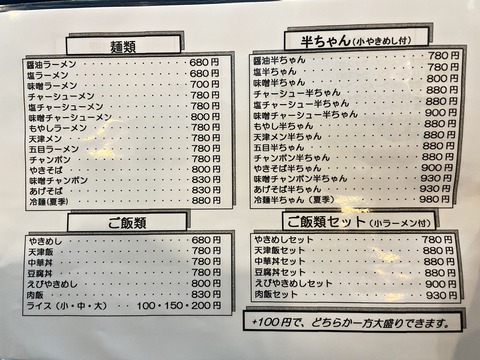 麺類
醤油ラーメン・・・・・・・・・・680円
塩ラーメン・・・・・・・・・・680円
味噌ラーメン・・・・・・・・・・700円
チャーシューメン・・・・・・・・・・780円
塩チャーシューメン・・・・・・・・・・780円
味噌チャーシューメン・・・・・・・・・・800円
もやしラーメン・・・・・・・・・・780円
天津メン・・・・・・・・・・780円
五目ラーメン・・・・・・・・・・780円
チャンポン・・・・・・・・・・780円
やきそば・・・・・・・・・・800円
味噌チャンポン・・・・・・・・・・830円
あげそば・・・・・・・・・・830円
冷麺(夏季)・・・・・・・・・・880円
ご飯類
やきめし・・・・・・・・・・680円
天津飯・・・・・・・・・・780円
中華丼・・・・・・・・・・780円
豆腐丼・・・・・・・・・・780円
えびやきめし・・・・・・・・・・800円
肉飯・・・・・・・・・・830円
ライス(小・中・大) 100・150・200円
半ちゃん(小やきめし付)
醤油半ちゃん・・・・・・・・・・780円
塩半ちゃん・・・・・・・・・・780円
味噌半ちゃん・・・・・・・・・・800円
チャーシュー半ちゃん・・・・・・・・・・880円
塩チャーシュー半ちゃん・・・・・・・・・・880円
味噌チャーシュー半ちゃん・・・・・・・・・・900円
もやし半ちゃん・・・・・・・・・・880円
天津メン半ちゃん・・・・・・・・・・880円
五目半ちゃん・・・・・・・・・・880円
チャンポン半ちゃん・・・・・・・・・・880円
やきそば半ちゃん・・・・・・・・・・900円
味噌チャンポン半ちゃん・・・・・・・・・・930円
あげそば半ちゃん・・・・・・・・・・930円
冷麺半ちゃん(夏季)・・・・・・・・・・980円
ご飯類セット(小ラーメン付)
やきめしセット・・・・・・・・・・780円
天津飯セット・・・・・・・・・・880円
中華丼セット・・・・・・・・・・880円
豆腐丼セット・・・・・・・・・・880円
えびやきめしセット・・・・・・・・・・900円
肉飯セット・・・・・・・・・・930円
+100円で、どちらか一方大盛りできます。